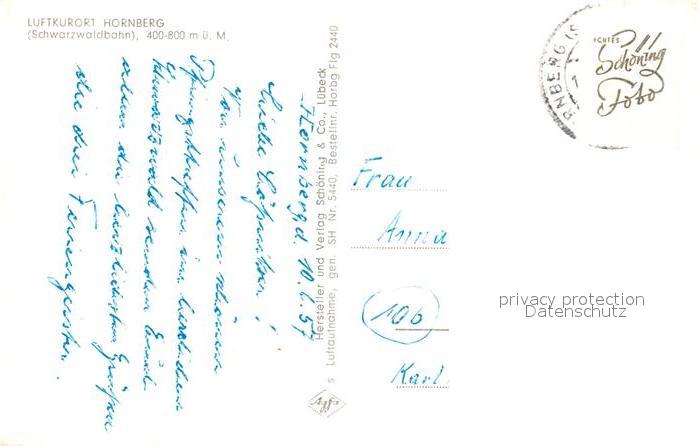 LUFTKURORT HORNBERG
(Schwarzwaldbahn), 400-800 m ü. M.
Hornberg, d. 10.6.57
Liebe
Von unserem schönen
Pfingsttreffen im herrlichen
Schwarzwald senden Euch
allen die herzlichsten Grüße
die drei
Hersteller und Verlag Schöning & Co., Lübeck
s Luftaufnahme, gen. SH Nr. 5440, Bestellnr. Horbg Flg 2440
Agfa
RNBERG (S
ECHTES
Schöning
Foto
Frau
Anna
10b
Karl
privacy protection
Datenschutz